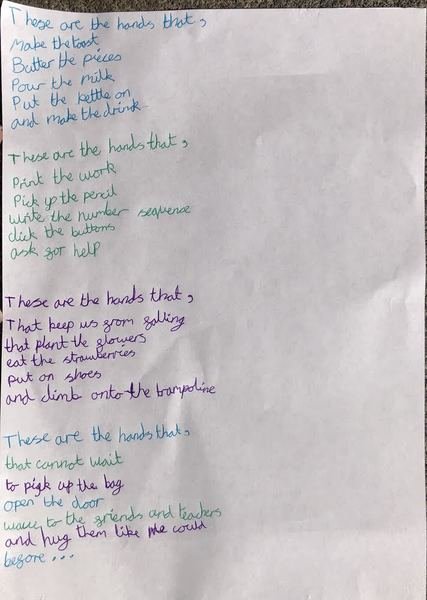 These are the hands that,
Make the toast
Butter the pieces
Pour the milk
Put the kettle on
and make the drink..
These are the hands that,
Print the work
Pick up the pencil
write the number sequence
click the buttons
ask for help
These are the hands that,
That keep us from falling
that plant the flowers
eat the strawberries
put on shoes
and climb onto the trampoline
These are the hands that,
that cannot wait
to pick up the bag
open the door
wave to the friends and teachers
and hug them like we could
before ...